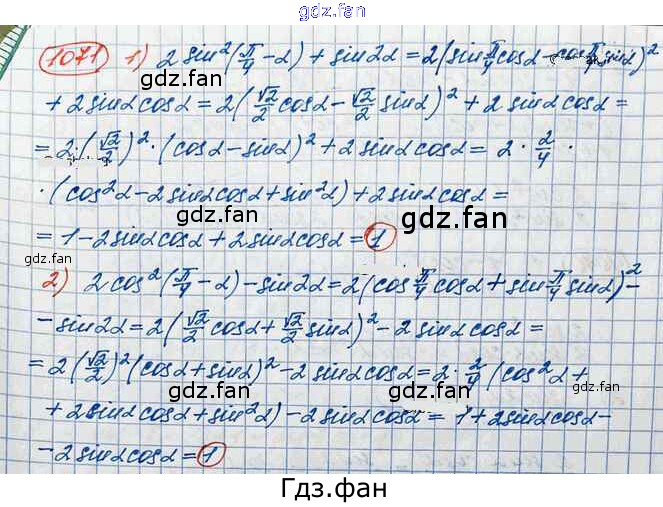 gdz.fan
1071 1) 2 sin²(π/4 - α) + sin2α = 2(sin π/4 cosα - cos π/4 sinα)²
gdz.fan gdz.fan
+ 2 sinα cosα = 2(√2/2 cosα - √2/2 sinα)² + 2 sinα cosα =
= 2·(√2/2)²·(cosα - sinα)² + 2 sinα cosα = 2 · 2/4 ·
· (cos²α - 2 sinα cosα + sin²α) + 2 sinα cosα =
gdz.fan gdz.fan
= 1 - 2 sinα cosα + 2 sinα cosα = 1
gdz.fan gdz.fan
2) 2 cos²(π/4 - α) - sin2α = 2(cos π/4 cosα + sin π/4 sinα)² -
- sin2α = 2(√2/2 cosα + √2/2 sinα)² - 2 sinα cosα =
= 2(√2/2)²(cosα + sinα)² - 2 sinα cosα = 2 · 2/4 (cos²α +
gdz.fan gdz.fan
+ 2 sinα cosα + sin²α) - 2 sinα cosα = 1 + 2 sinα cosα -
gdz.fan
- 2 sinα cosα = 1
Гдз.фан